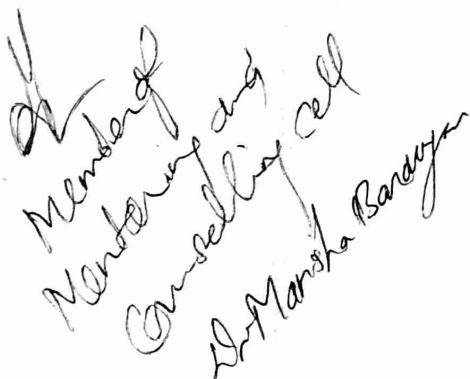 Member of
Mentoring and
Counselling cell
Dr Manisha